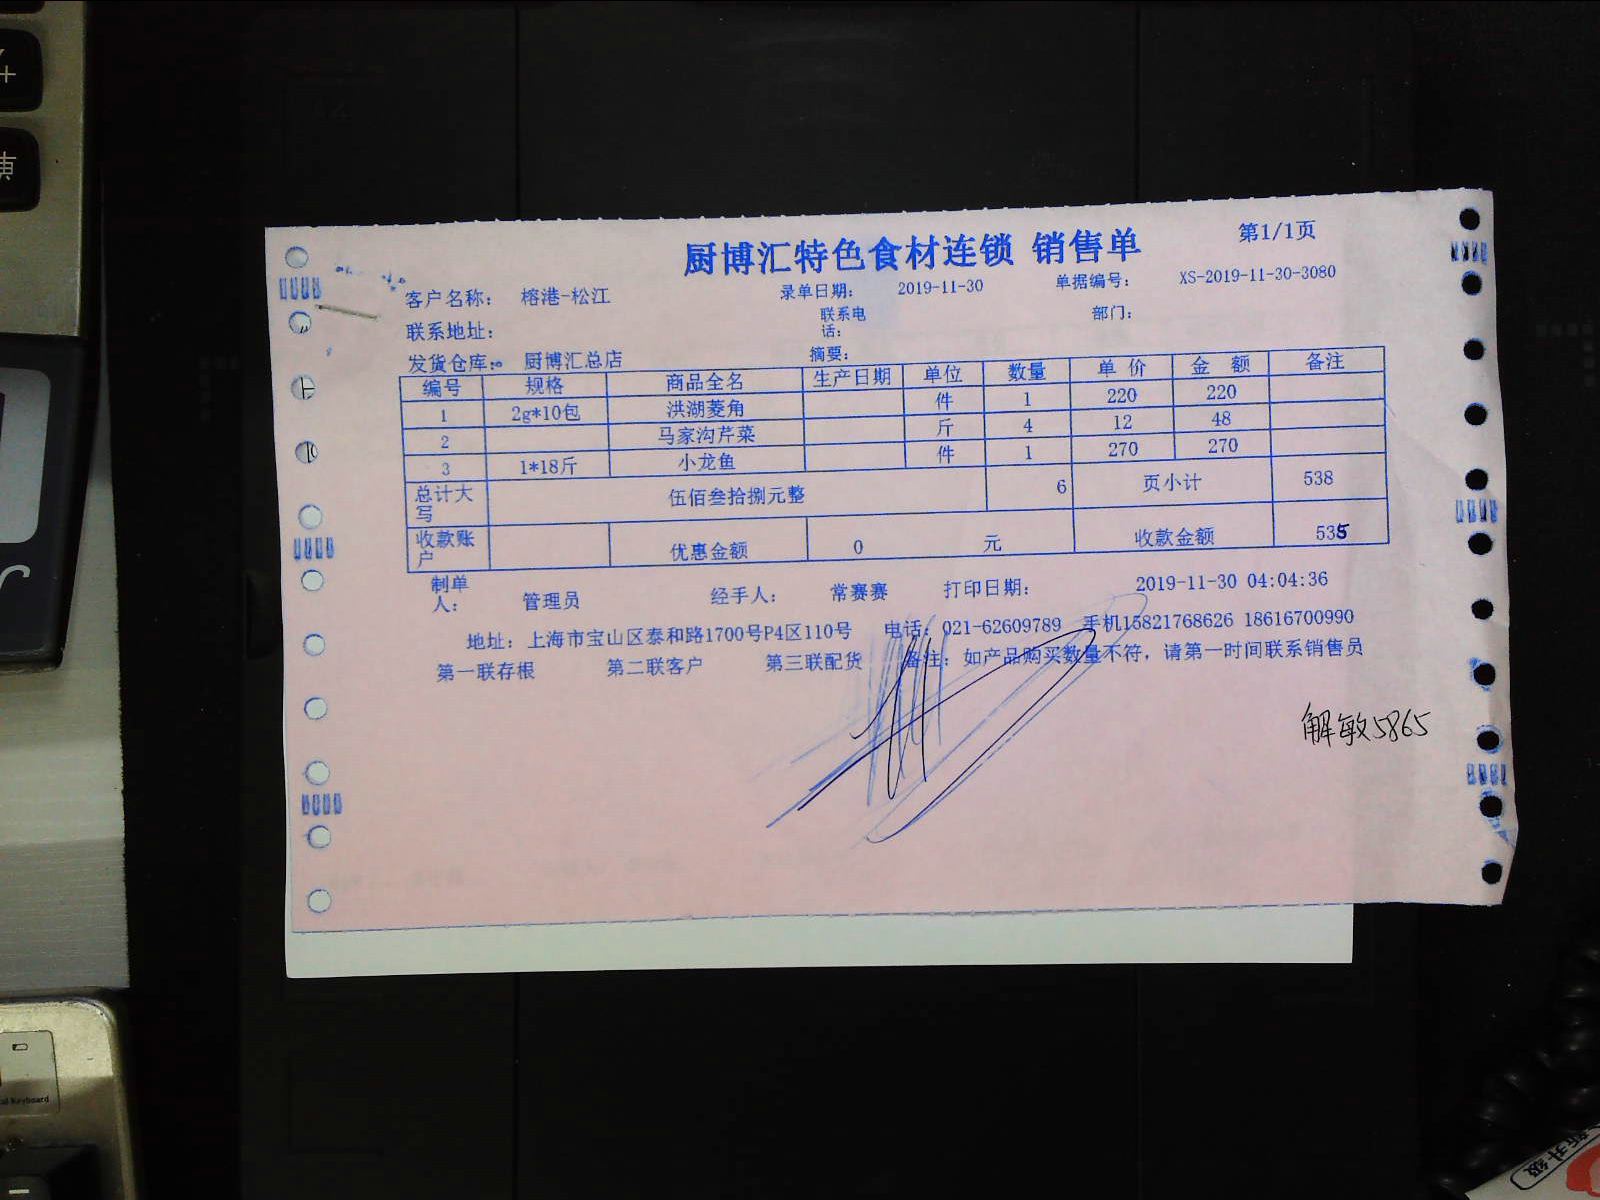 厨博汇特色食材连锁 销售单
第1/1页
客户名称： 榕港-松江 录单日期： 2019-11-30 单据编号： XS-2019-11-30-3080
联系地址： 联系电话： 部门：
发货仓库： 厨博汇总店 摘要：
编号 规格 商品全名 生产日期 单位 数量 单 价 金 额 备注
1 2g*10包 洪湖菱角 件 1 220 220
2 马家沟芹菜 斤 4 12 48
3 1*18斤 小龙鱼 件 1 270 270
总计大写 伍佰叁拾捌元整 6 页小计 538
收款账户 优惠金额 0 元 收款金额 535
制单人： 管理员 经手人： 常赛赛 打印日期： 2019-11-30 04:04:36
地址：上海市宝山区泰和路1700号P4区110号 电话：021-62609789 手机15821768626 18616700990
第一联存根 第二联客户 第三联配货 备注：如产品购买数量不符，请第一时间联系销售员
解敏5865
新升级